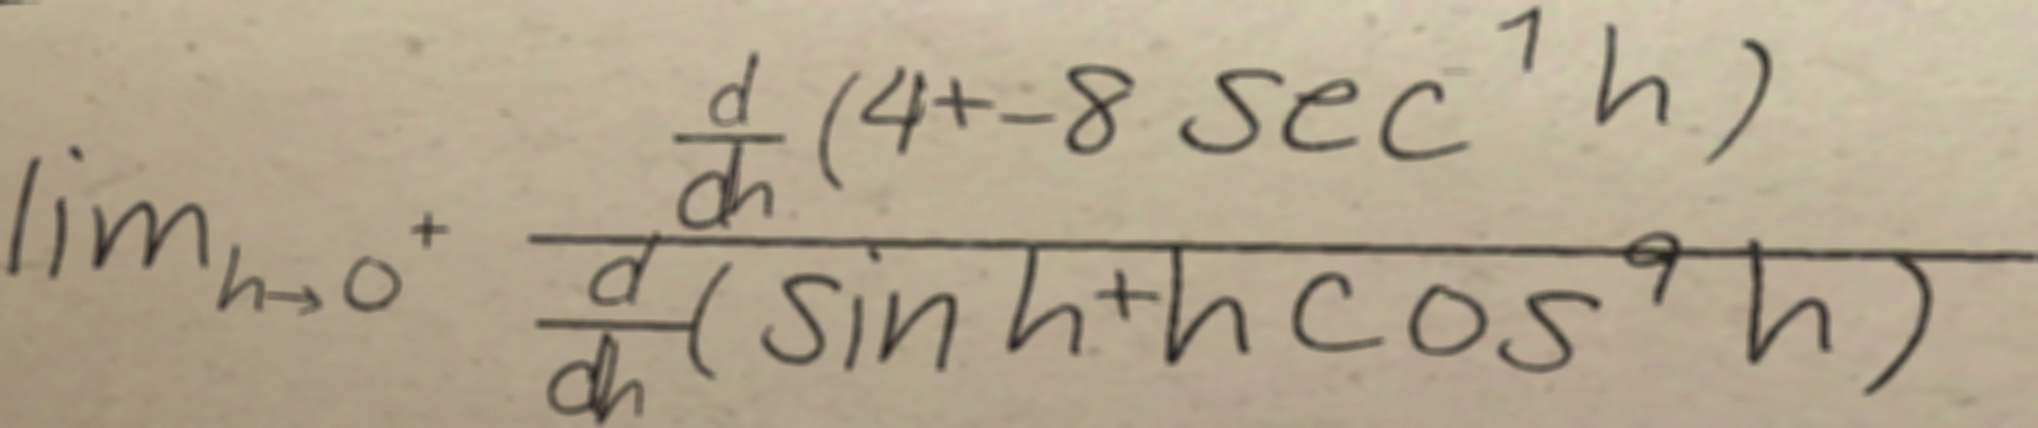 \lim_{h \to 0^+} \frac{\frac{d}{dh}(4+-8\sec^1 h)}{\frac{d}{dh}(\sin h+h\cos^9 h)}